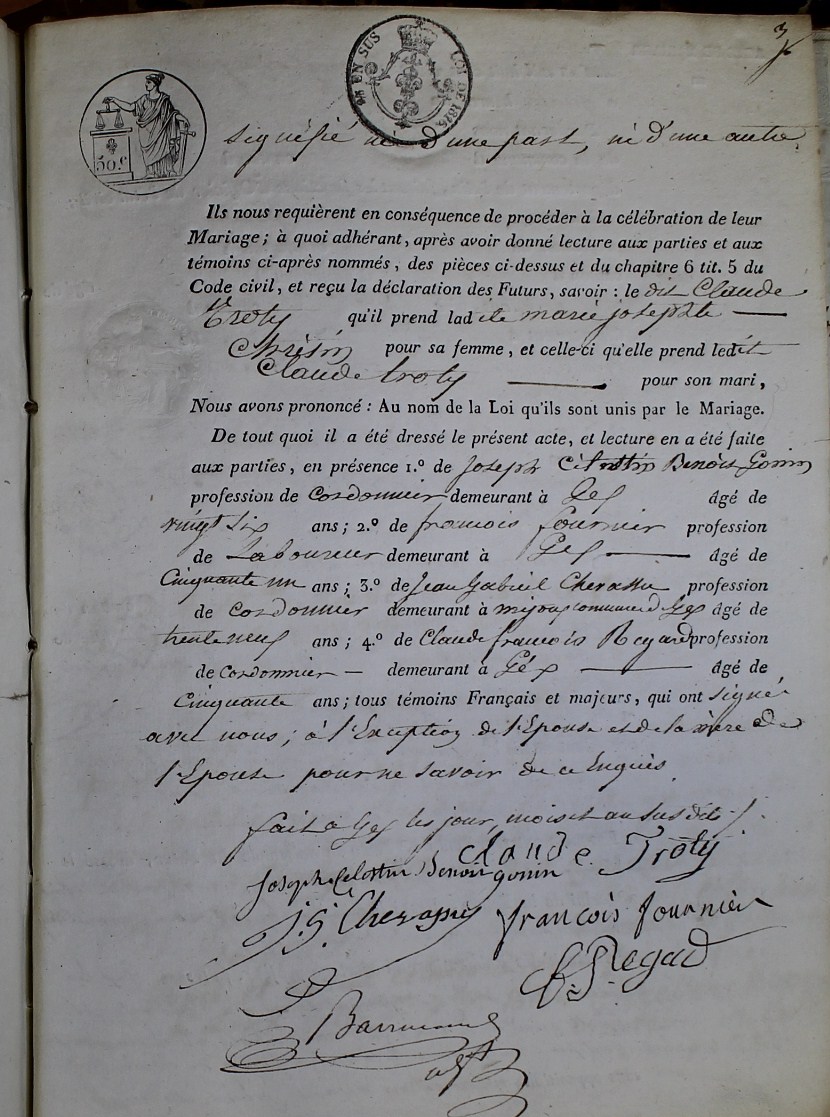 3
EN SUS LOI DE 1816.
50.c
signéfié ni d'une part, ni d'une autre.
Ils nous requièrent en conséquence de procéder à la célébration de leur
Mariage; à quoi adhérant, après avoir donné lecture aux parties et aux
témoins ci-après nommés, des pièces ci-dessus et du chapitre 6 tit. 5 du
Code civil, et reçu la déclaration des Futurs, savoir : le dit Claude
Troty qu'il prend ladite marie josephte
pour sa femme, et celle-ci qu'elle prend ledit
Claude troty pour son mari,
Nous avons prononcé : Au nom de la Loi qu'ils sont unis par le Mariage.
De tout quoi il a été dressé le présent acte, et lecture en a été faite
aux parties, en présence 1.º de Joseph Célestin Benoit Gonin
profession de Cordonnier demeurant à Gex âgé de
vingt six ans; 2.º de francois fournier profession
de Laboureur demeurant à Gex âgé de
Cinquante un ans; 3.º de Jean Gabriel Cherassu profession
de Cordonnier demeurant à mijoux commune de Gex âgé de
trente neuf ans; 4.º de Claude francois Regard profession
de Cordonnier demeurant à Géx âgé de
Cinquante ans; tous témoins Français et majeurs, qui ont signé
avec nous; à l'Exception de l'Epouse et de la mère de
l'Epouse pour ne savoir de ce Enquis
fait à Gex les jour, mois et an sus dits
Claude Troty
Joseph Celestin Benoit gonin
J.G. Cherassu françois fournier
C. F. Regad